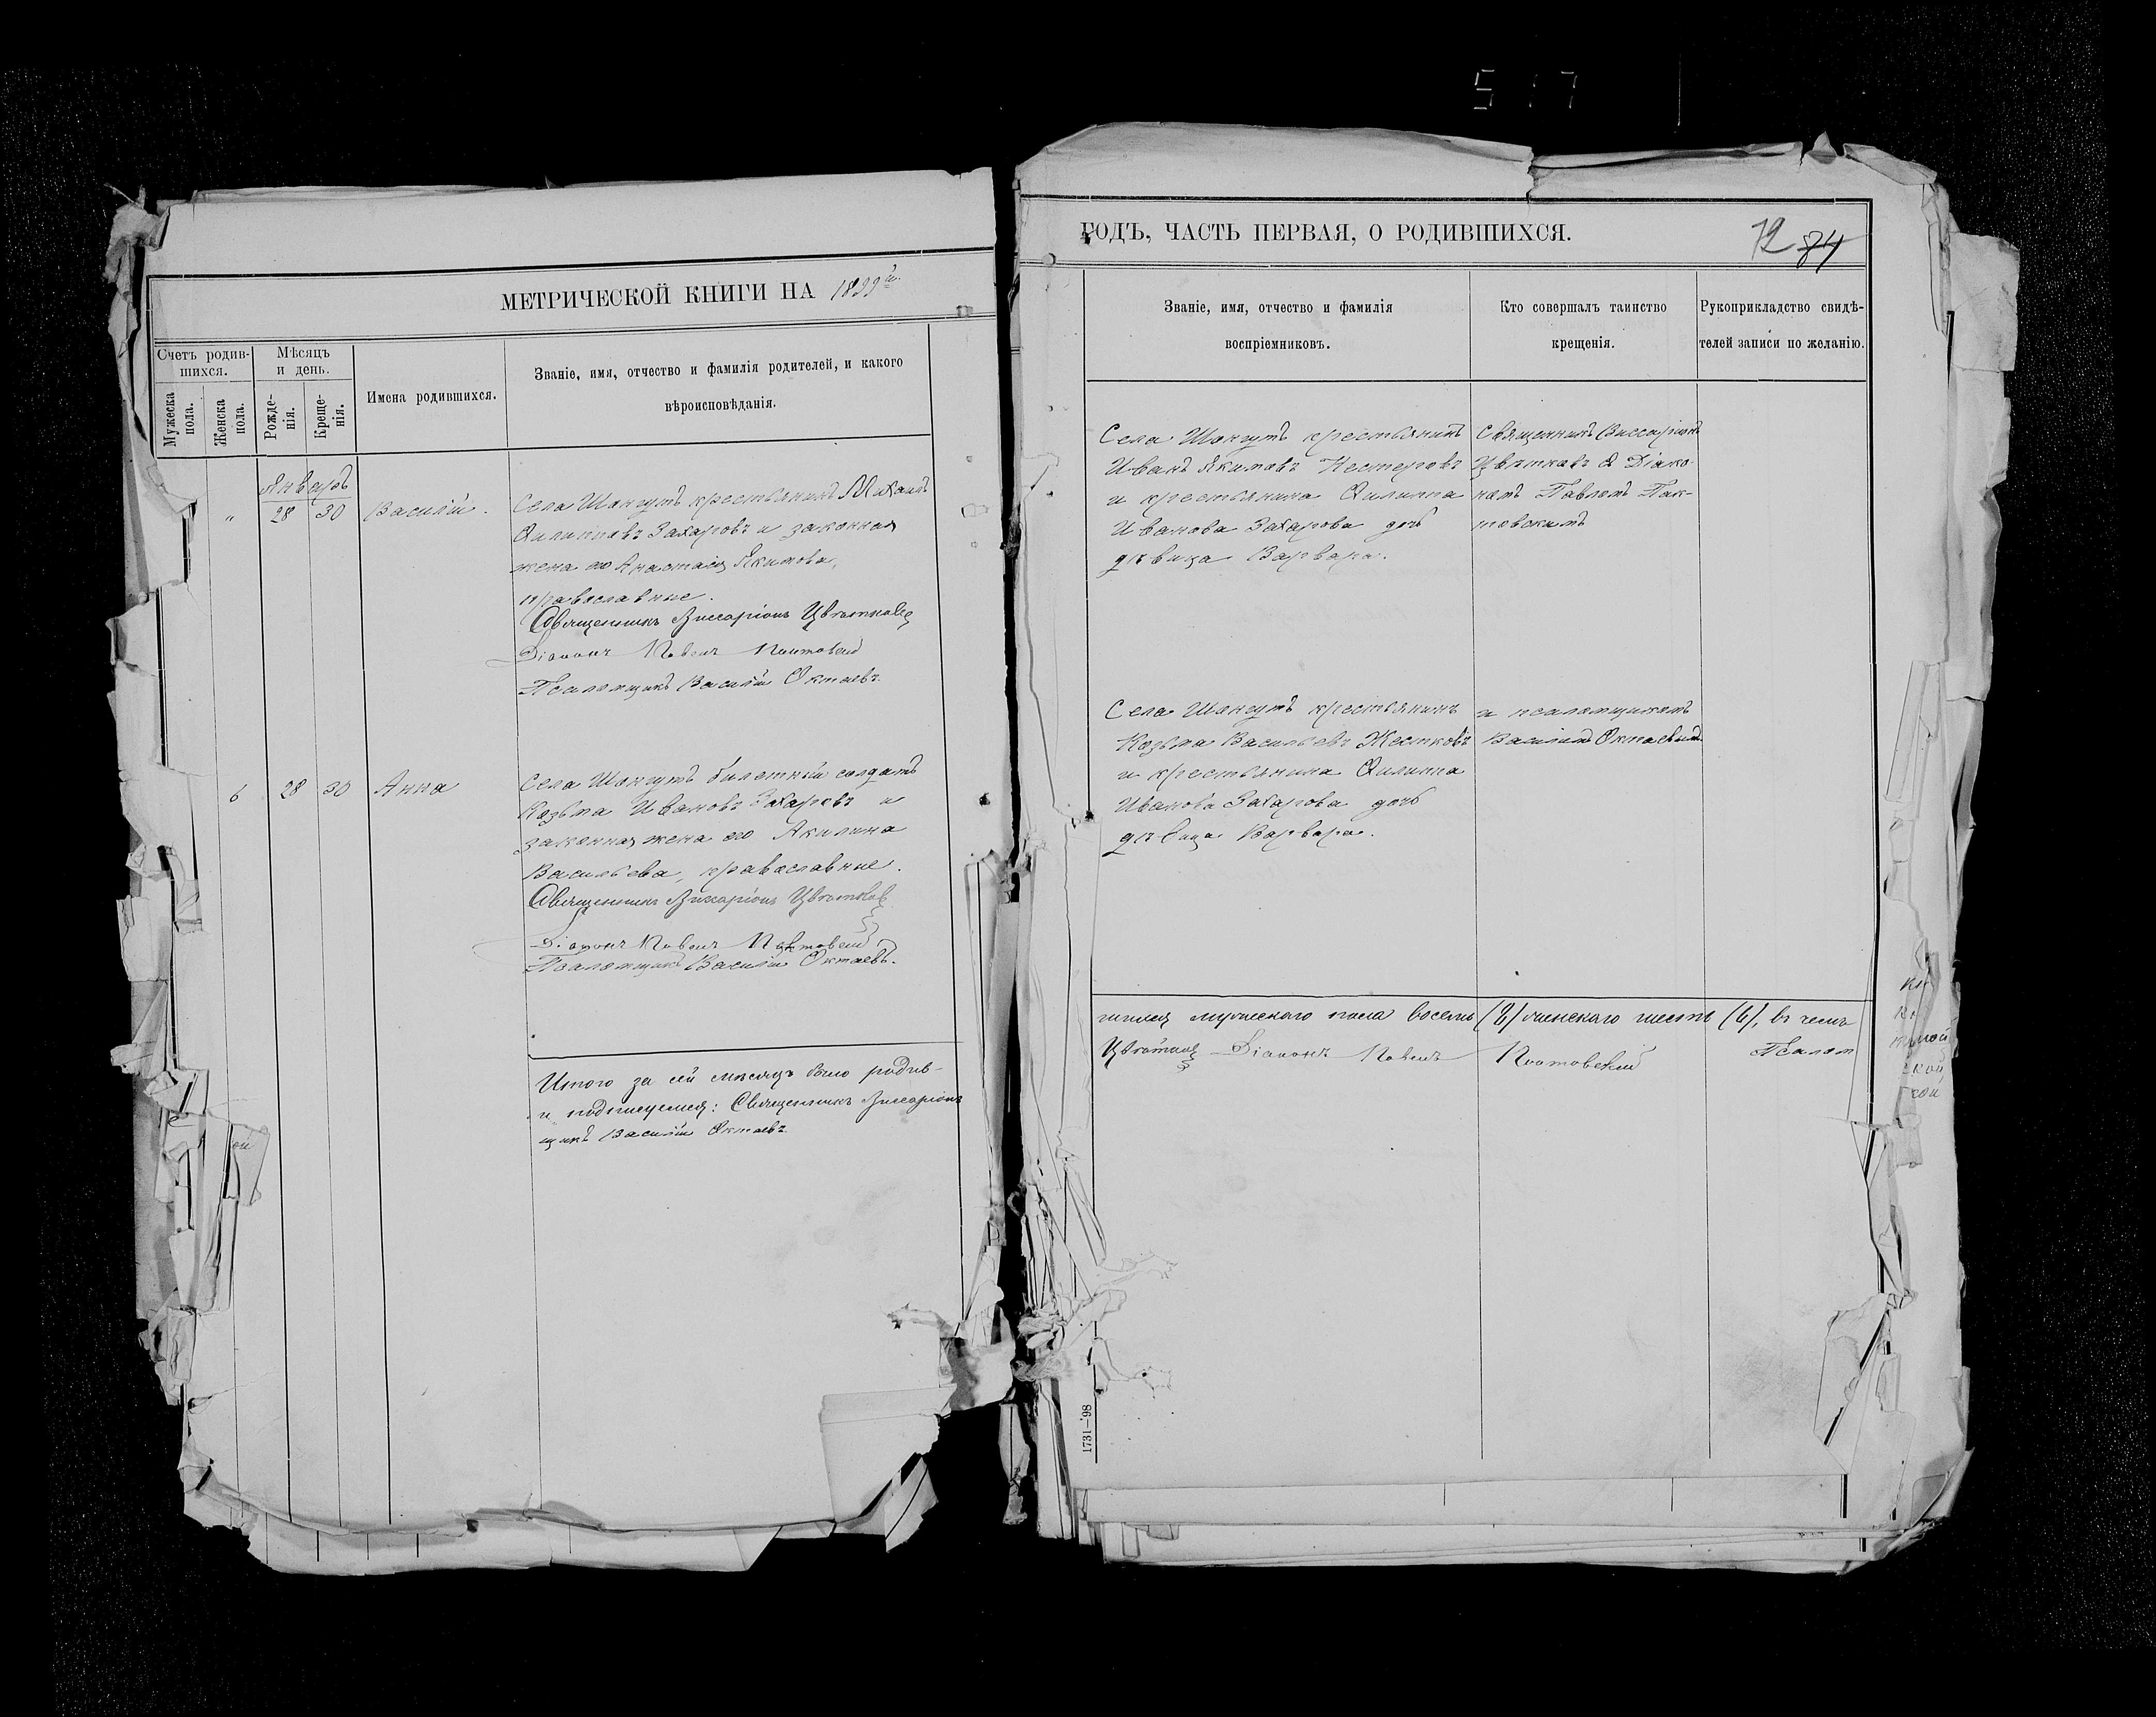 517
МЕТРИЧЕСКОЙ КНИГИ НА 1899й.
Счетъ родив-
шихся.
Мѣсяцъ
и день.
Мужеска
пола.
Женска
пола.
Рожде-
нія.
Креще-
нія.
Имена родившихся.
Званіе, имя, отчество и фамилія родителей, и какого
вѣроисповѣданія.
Январь
„ 28 30 Василій.
Села Шонгутъ крестьянинъ Михаилъ
Филипповъ Захаровъ и законная
жена его Анастасія Якимова,
православные.
Священникъ Виссаріонъ Цвѣтковъ
Діаконъ Павелъ
Псаломщикъ Василій Октаевъ.
6 28 30 Анна
Села Шонгутъ билетный солдатъ
Козьма Ивановъ Захаровъ и
законная жена его Акилина
Васильева, православные.
Священникъ Виссаріонъ Цвѣтковъ
Діаконъ Павелъ
Псаломщикъ Василій Октаевъ.
Итого за сей мѣсяцъ было родив-
и подписуемся: Священникъ Виссаріонъ
щикъ Василій Октаевъ.
ГОДЪ, ЧАСТЬ ПЕРВАЯ, О РОДИВШИХСЯ.
72 84
Званіе, имя, отчество и фамилія
воспріемниковъ.
Кто совершалъ таинство
крещенія.
Рукоприкладство свидѣ-
телей записи по желанію.
Села Шонгутъ крестьянинъ
Иванъ Якимовъ Нестеровъ
и крестьянина Филиппа
Иванова Захарова дочь
дѣвица Варвара.
Священникъ Виссаріонъ
Цвѣтковъ с Діако-
номъ Павломъ Пак-
товскимъ
Села Шонгутъ крестьянинъ
Козьма Васильевъ Жестковъ
и крестьянина Филиппа
Иванова Захарова дочь
дѣвица Варвара.
и псаломщикомъ
Василіемъ Октаевымъ.
шихся мужескаго пола восемь (8) женскаго шесть (6), въ чемъ
Цвѣтковъ Діаконъ Павелъ Псалом
1731—98